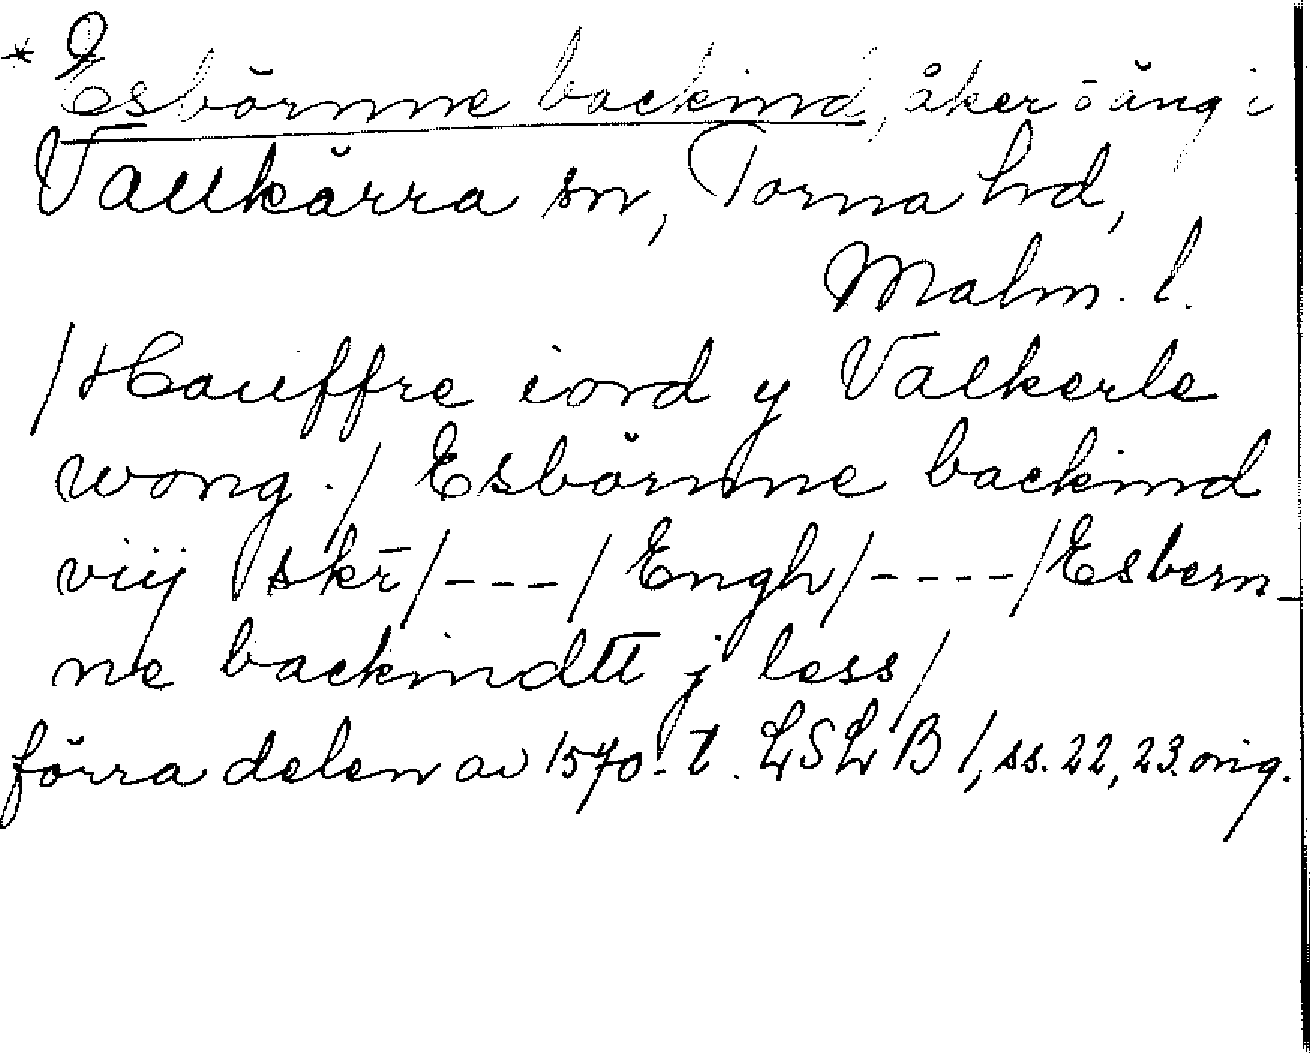 * Esbörnne backind, åker o äng i
Vallkärra sn, Torna hd,
Malm. l.
/Hauffre iord y Valkerle
wong./ Esbörnne backind
viij skr̄/---/Engh/----/Esbern-
ne backindtt j less/
förra delen av 1570-t. LSLB 1, ss. 22, 23. orig.